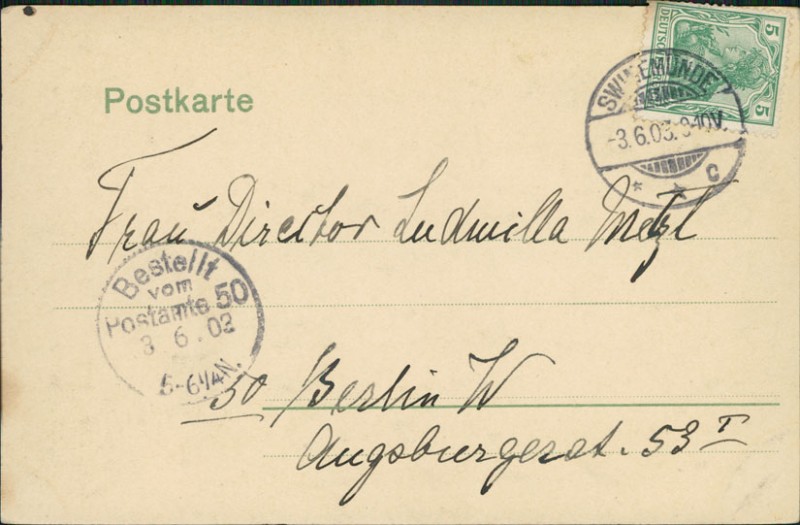 5
DEUTSCH
5
SWINEMÜNDE
-3.6.03. 9-10V.
* * c
Postkarte
Frau Director Ludmilla Metzl
Bestellt
vom
Postamte 50
3 6.03
5-6¼N.
50 Berlin W
Augsburgerst. 53 I